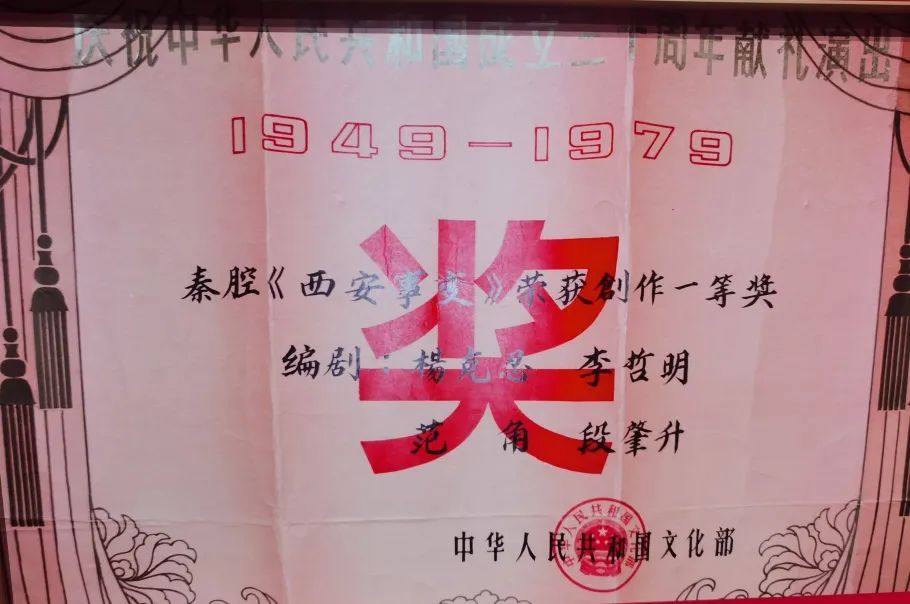 庆祝中华人民共和国成立三十周年献礼演出
1949-1979
奖
秦腔《西安事变》荣获創作一等奖
编剧：楊克忍 李哲明
范角 段肇升
中华人民共和国文化部